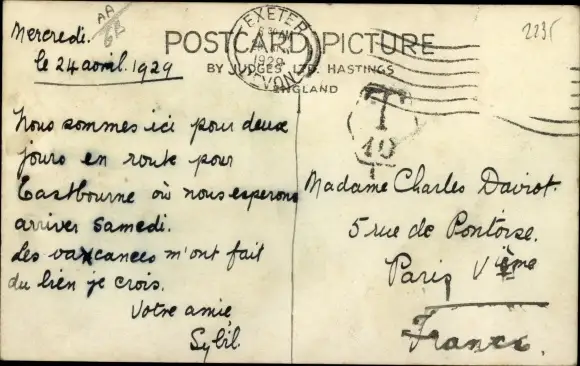 Mercredi.
le 24 avril. 1929
Nous sommes ici pour deux
jours en route pour
Eastbourne où nous esperons
arriver Samedi.
Les vacances m'ont fait
du bien je crois.
Votre amie,
Sybil.
AA
POSTCARD PICTURE
BY JUDGES LTD. HASTINGS
ENGLAND
EXETER
1929
DEVON
2235
T
10
Madame Charles Daviot.
5 rue de Pontoise.
Paris Vième
France.